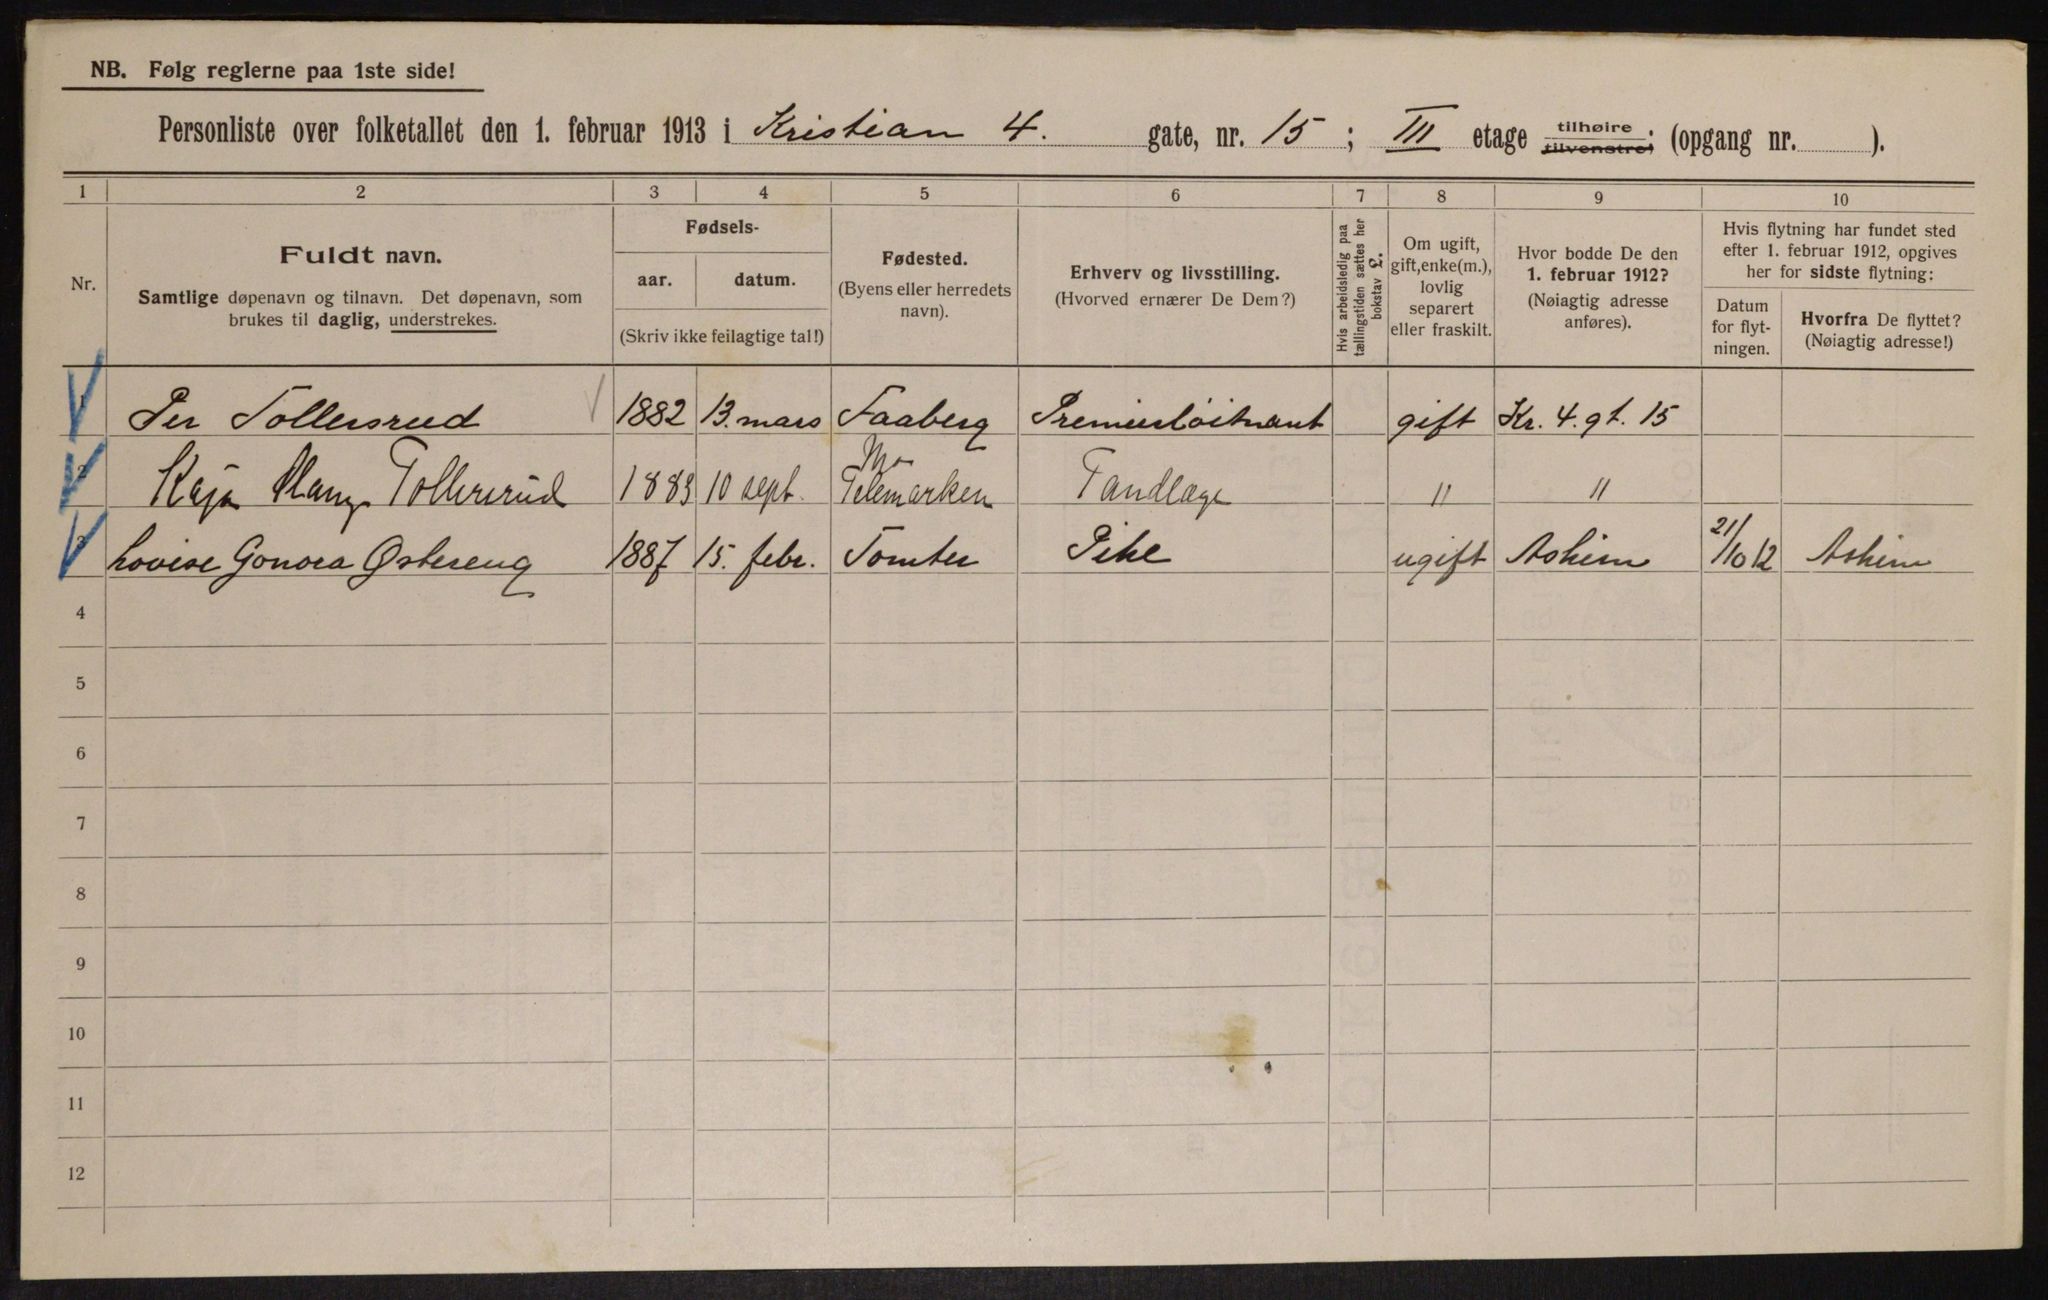 NB. Følg reglerne paa 1ste side!
Personliste over folketallet den 1. februar 1913 i Kristian 4. gate, nr. 15 ; III etage tilhøire tilvenstre; (opgang nr. ).
1 2 3 4 5 6 7 8 9 10
Nr.
Fuldt navn.
Samtlige døpenavn og tilnavn. Det døpenavn, som
brukes til daglig, understrekes.
Fødsels-
aar. datum.
(Skriv ikke feilagtige tal!)
Fødested.
(Byens eller herredets
navn).
Erhverv og livsstilling.
(Hvorved ernærer De Dem?)
Hvis arbeidsledig paa
tællingstiden sættes her
bokstav L.
Om ugift,
gift, enke(m.),
lovlig
separert
eller fraskilt.
Hvor bodde De den
1. februar 1912?
(Nøiagtig adresse
anføres).
Hvis flytning har fundet sted
efter 1. februar 1912, opgives
her for sidste flytning:
Datum
for flyt-
ningen.
Hvorfra De flyttet?
(Nøiagtig adresse!)
1 Per Tollersrud 1882 13. mars Faaberg Premierløitnant gift Kr. 4. gt. 15
Mo
2 Kaja Tollersrud 1883 10 sept. Telemarken Tandlæge " "
3 Lovise Gonora Østereng 1887 15. febr. Tomter Pike ugift Askim 21/10 12 Askim
4
5
6
7
8
9
10
11
12